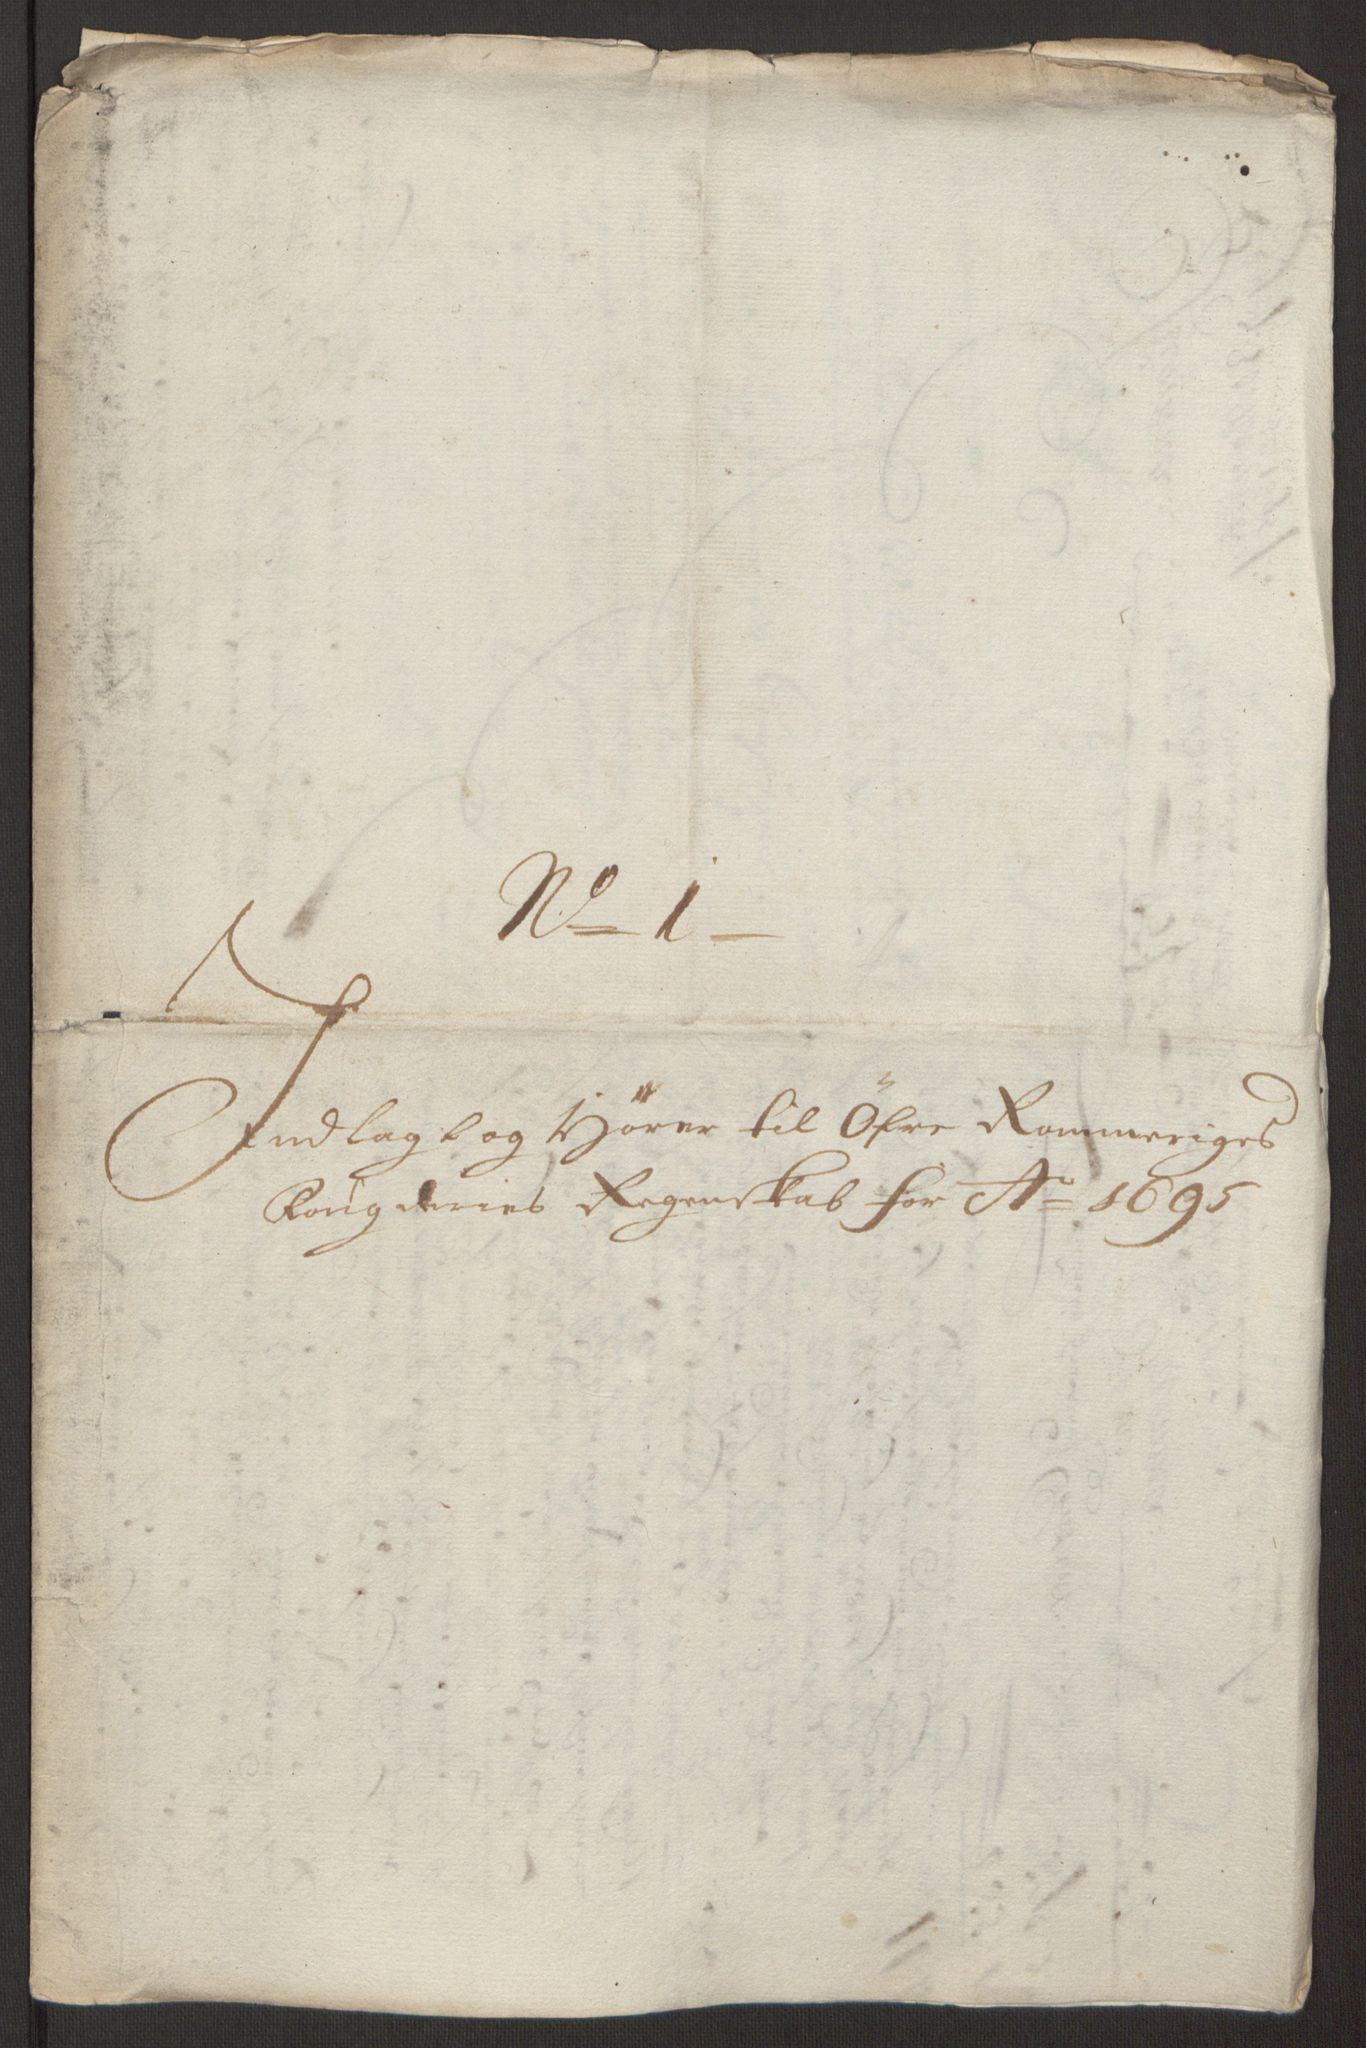 No 1
Indlagt og Hörer til Öfre Rommeriges
Fougderies Regenskab for Ao 1695